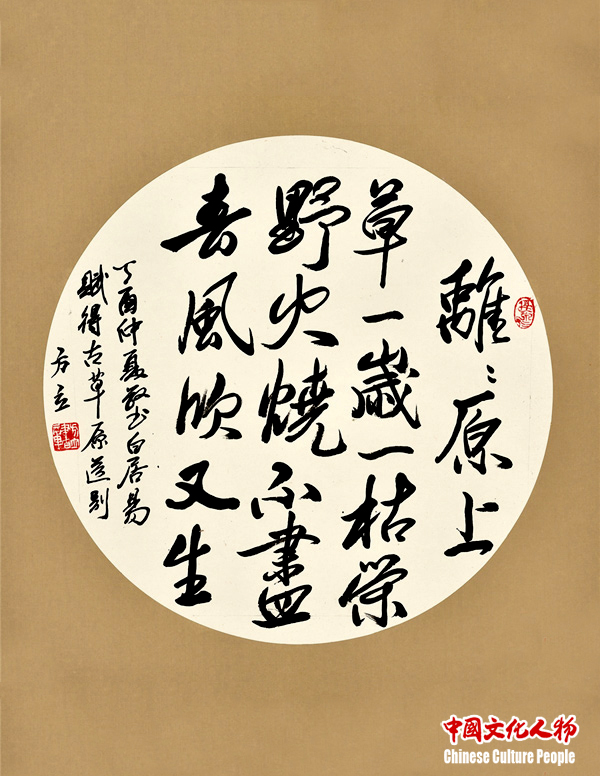 離〻原上
草一歲一枯榮
野火燒不盡
春風吹又生
丁酉仲夏敬书白居易
賦得古草原送別
方立
中國文化人物
Chinese Culture People